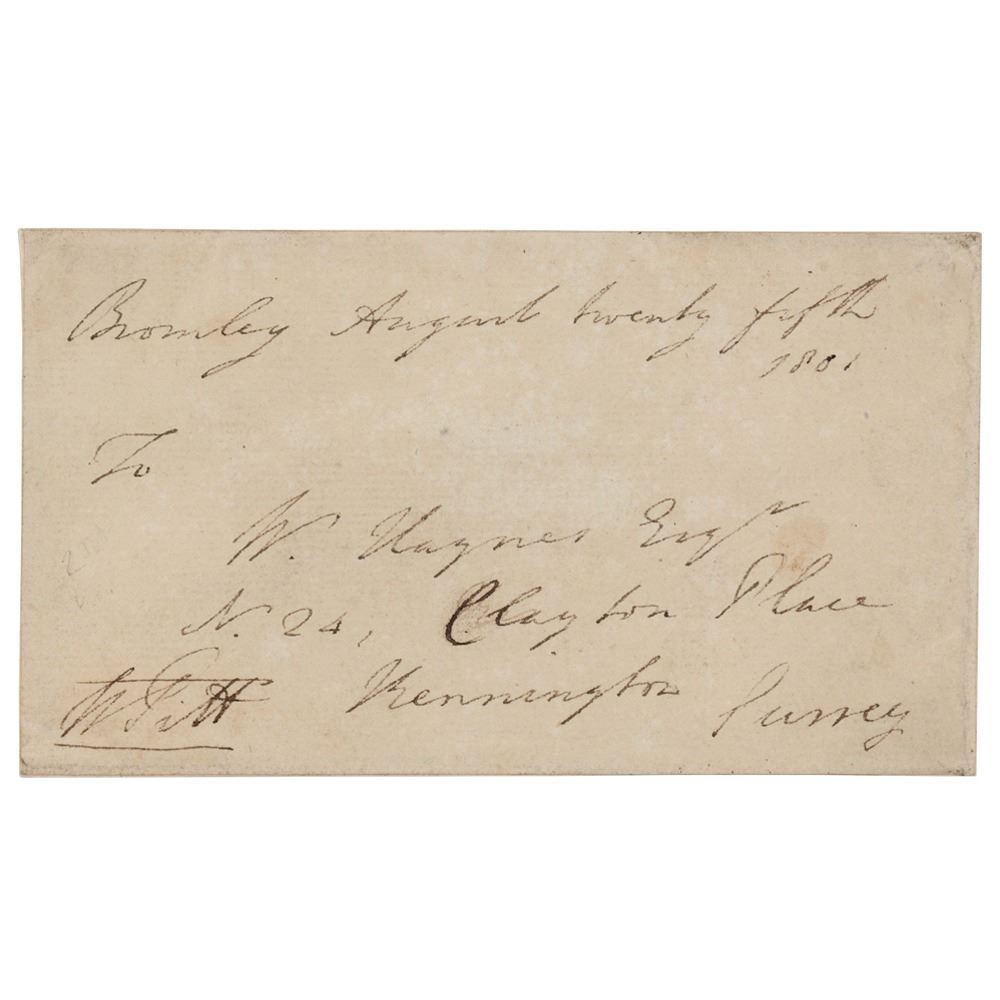 Bromley August twenty fifth
1801
To
W. Haynes Esqr
N. 24, Clayton Place
Kennington Surrey
W Pitt